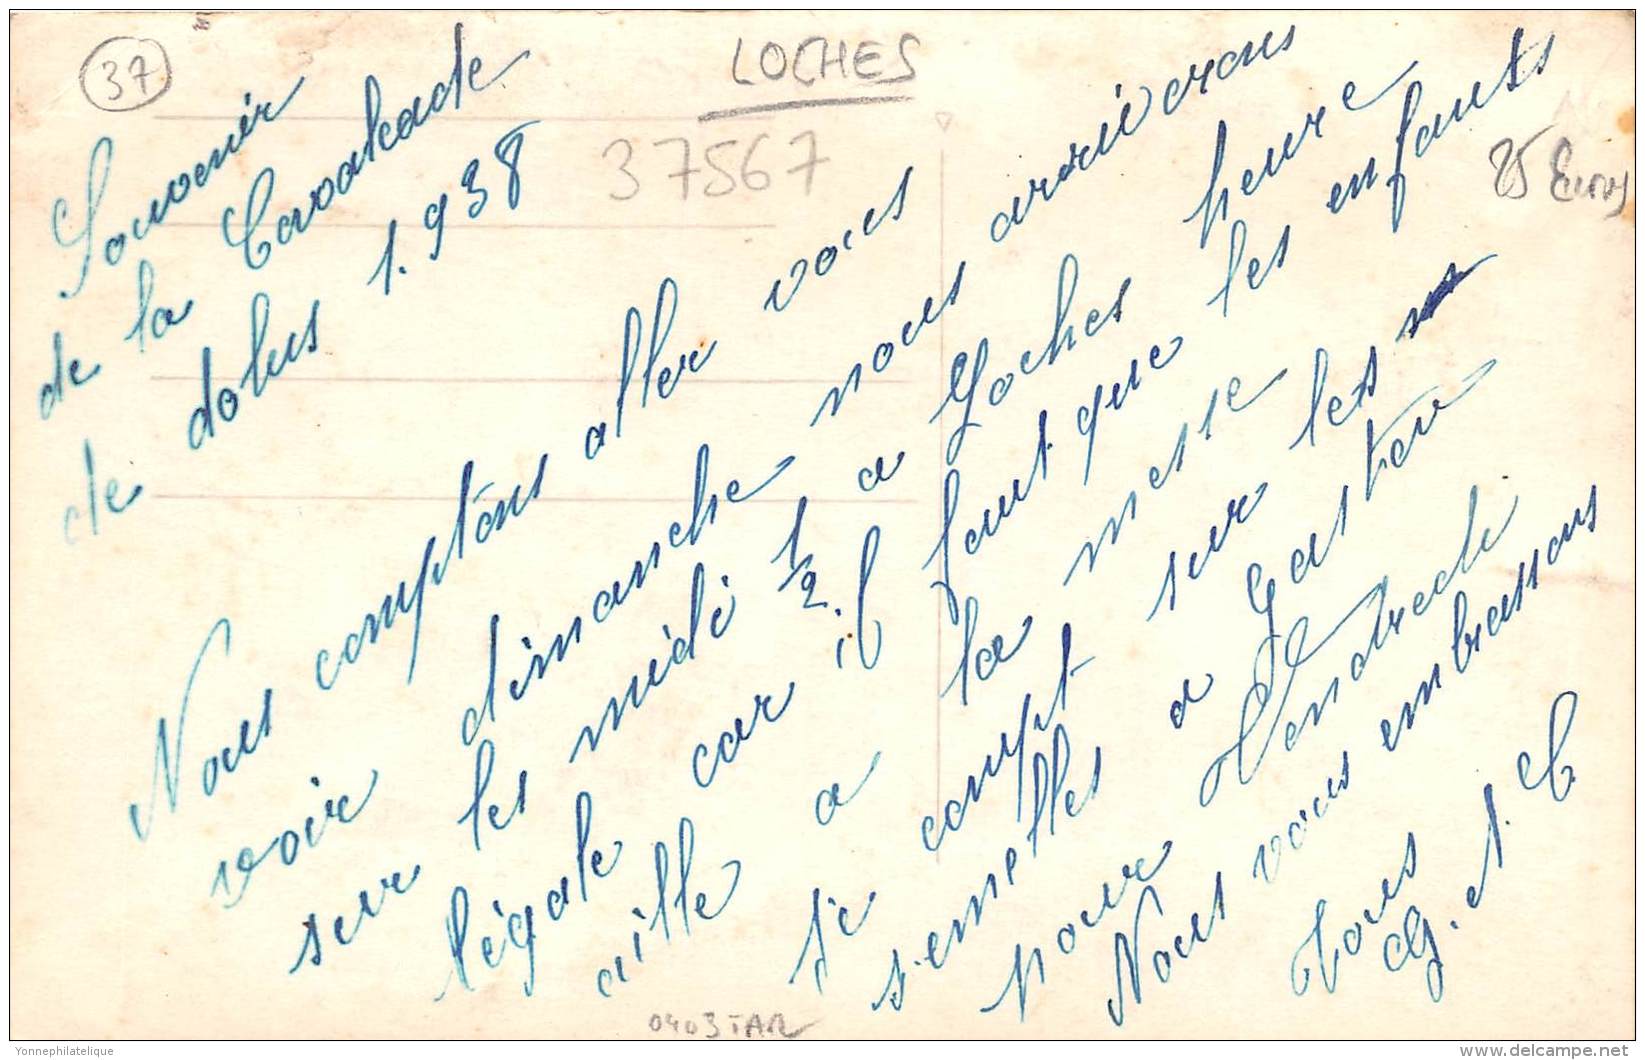 37
LOCHES
37567
85 Euros
Souvenir
de la Cavalcade
de dolus 1.938
Nous comptons aller vous
voir dimanche nous arriverons
sur les midi 1/2 a Loches heure
légale car il faut que les enfants
aille a la messe
Je compt sur les
semelles a Gaston
pour Vendredi
Nous vous embrassons
Tous
G. A. C
0403TAR
Yonnephilatelique
delcampe.net